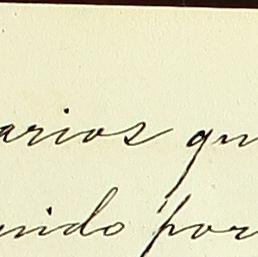 arios qu
nido por